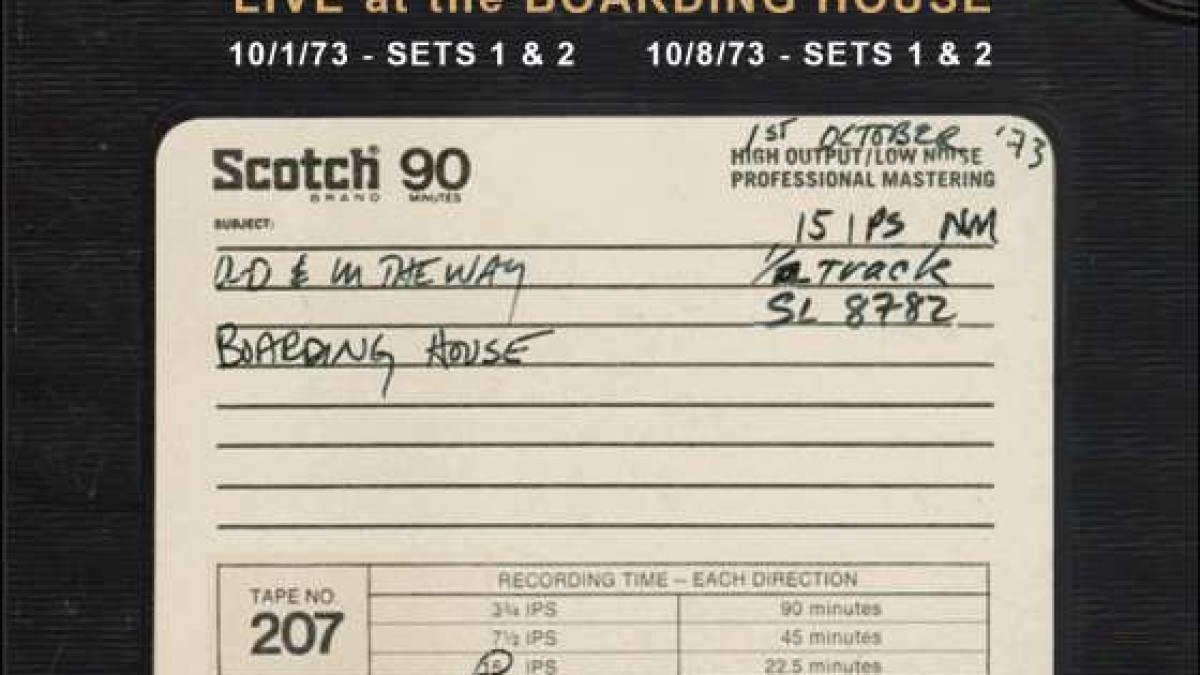 LIVE at the BOARDING HOUSE
10/1/73 - SETS 1 & 2 10/8/73 - SETS 1 & 2
1ST OCTOBER '73
Scotch® 90
BRAND MINUTES
HIGH OUTPUT/LOW NOISE
PROFESSIONAL MASTERING
SUBJECT:
15 IPS NM
OLD & IN THE WAY
1/2 Track
SL 8782
BOARDING HOUSE
RECORDING TIME – EACH DIRECTION
TAPE NO.
207
3¾ IPS 90 minutes
7½ IPS 45 minutes
15 IPS 22.5 minutes